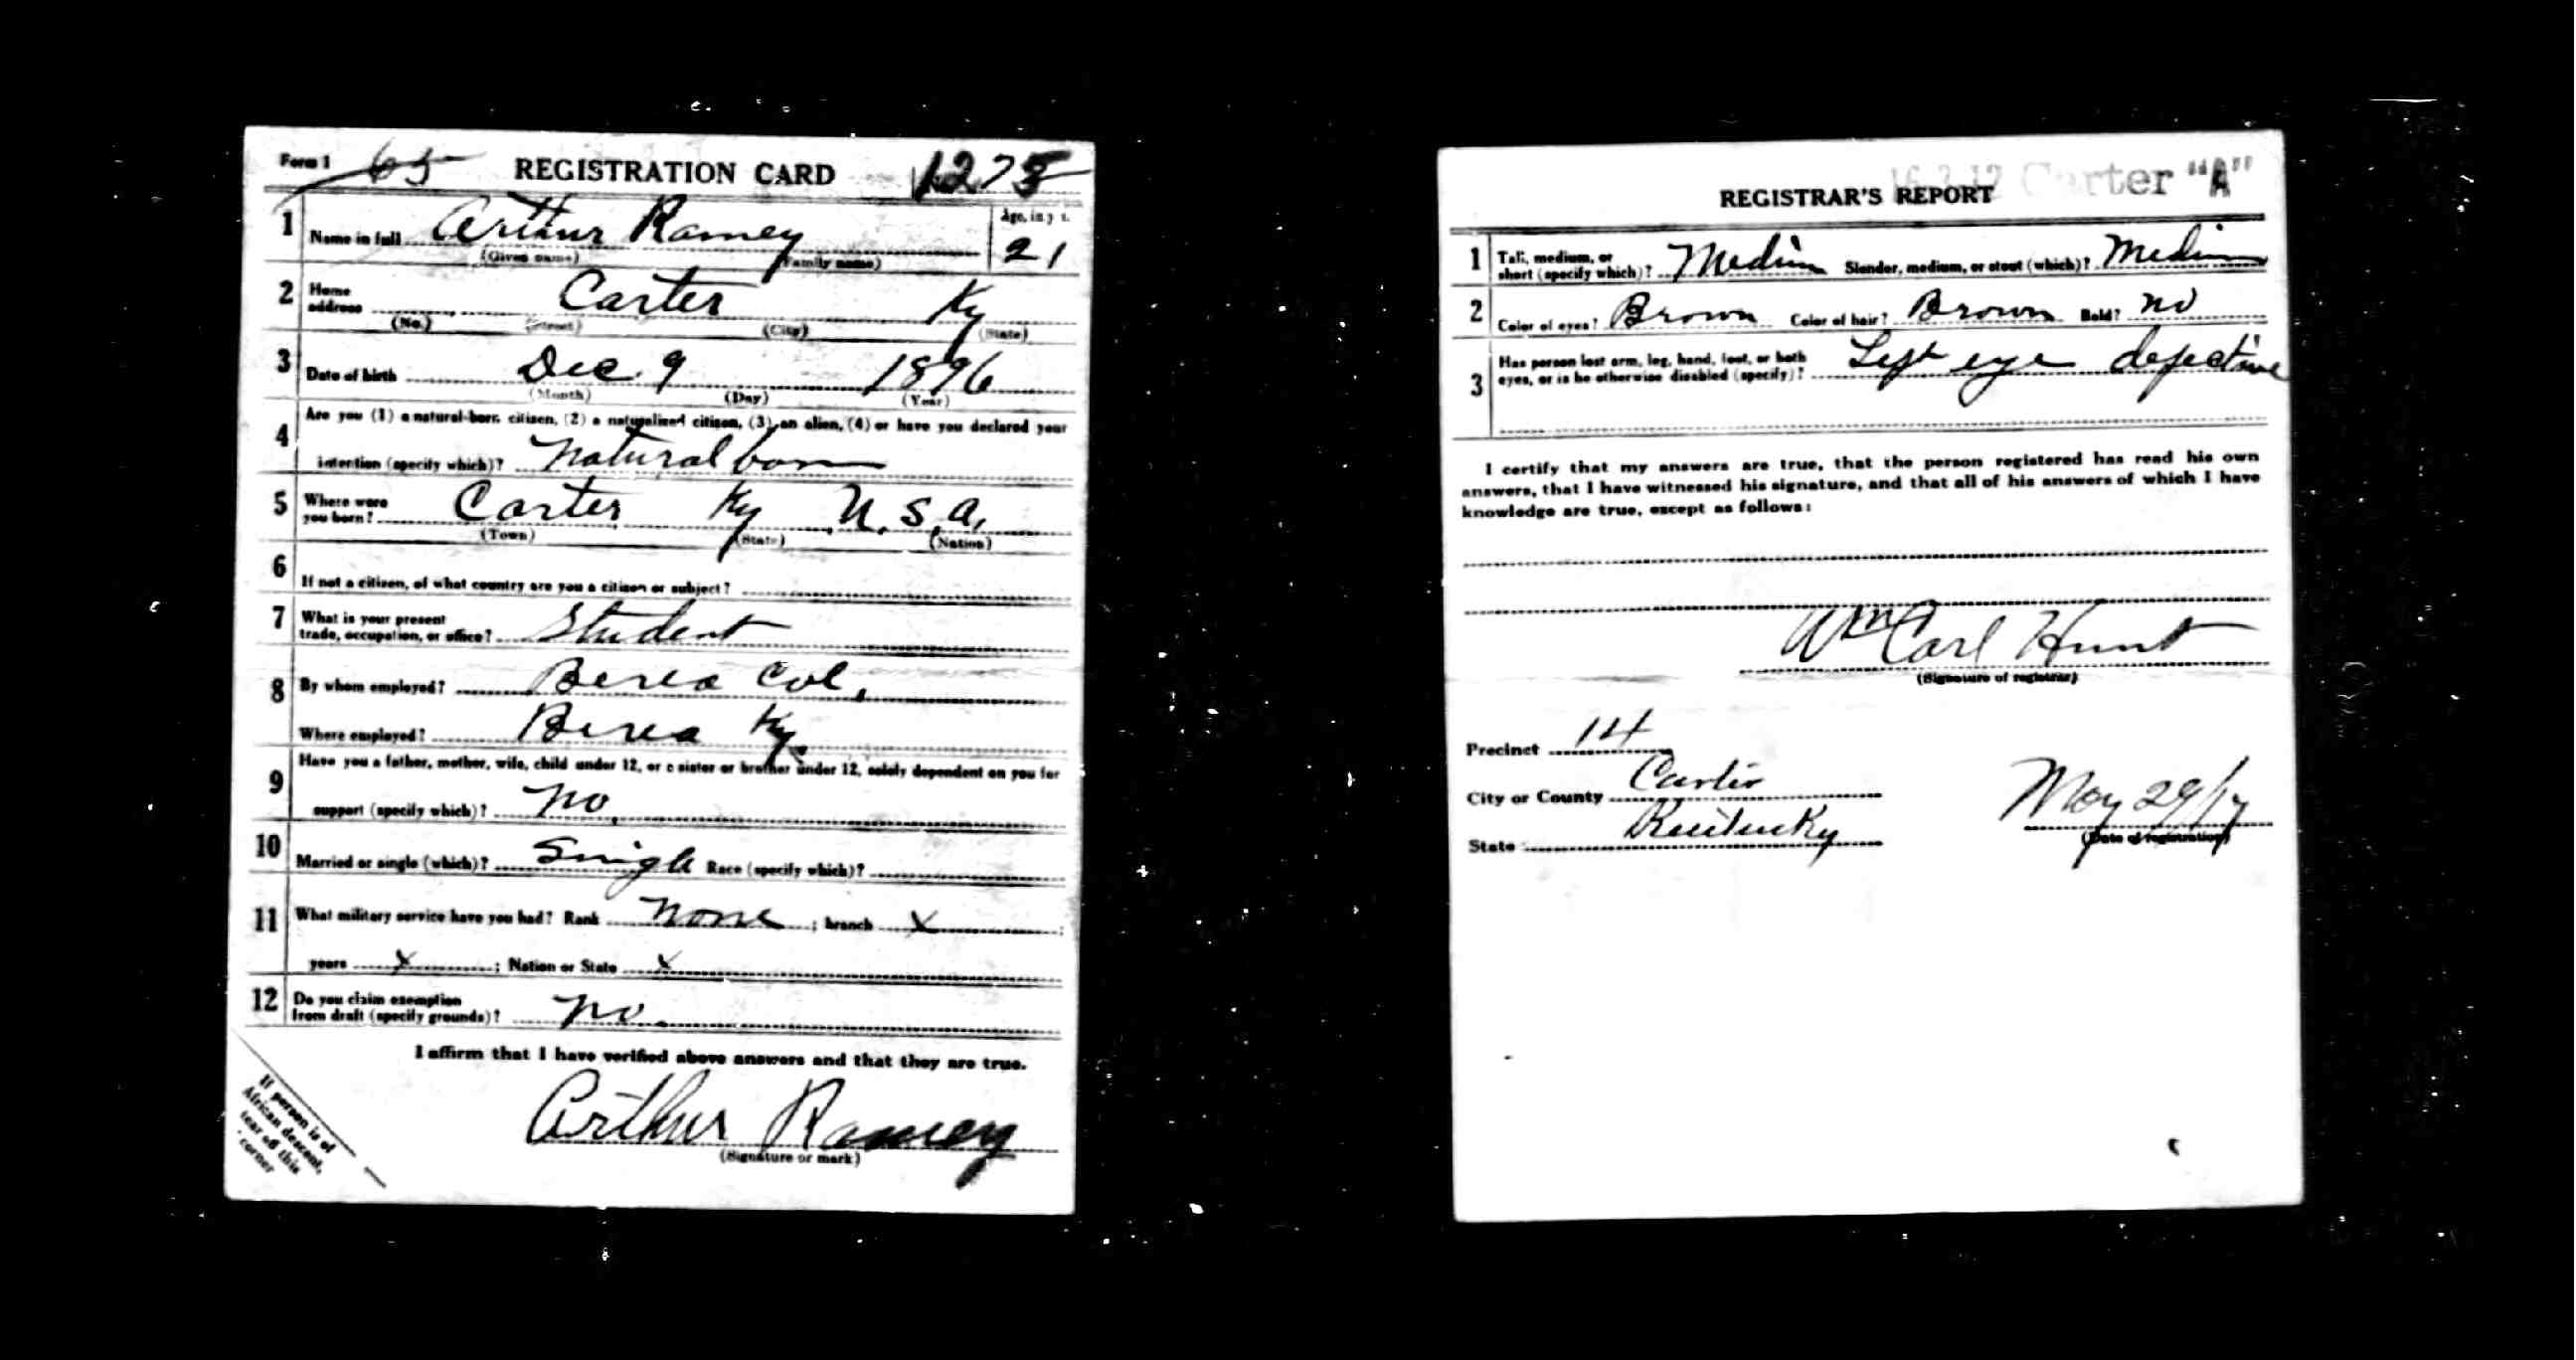 Form 1 65 REGISTRATION CARD 1275
1 Name in full Arthur Ramey 21
(Given name) (Family name) Age, in yrs.
2 Home address Carter Ky
(No.) (Street) (City) (State)
3 Date of birth Dec 9 1896
(Month) (Day) (Year)
4 Are you (1) a natural-born citizen, (2) a naturalized citizen, (3) an alien, (4) or have you declared your
intention (specify which)? Natural born
5 Where were you born? Carter Ky U.S.A.
(Town) (State) (Nation)
6 If not a citizen, of what country are you a citizen or subject?
7 What is your present
trade, occupation, or office? Student
8 By whom employed? Berea Col.
Where employed? Berea Ky.
9 Have you a father, mother, wife, child under 12, or a sister or brother under 12, solely dependent on you for
support (specify which)? No
10 Married or single (which)? Single Race (specify which)?
11 What military service have you had? Rank None ; branch X ;
years X ; Nation or State X
12 Do you claim exemption
from draft (specify grounds)? No.
I affirm that I have verified above answers and that they are true.
Arthur Ramey
(Signature or mark)
If person is of
African descent,
tear off this
corner
Carter "A"
REGISTRAR'S REPORT
1 Tall, medium, or
short (specify which)? Medium Slender, medium, or stout (which)? Medium
2 Color of eyes? Brown Color of hair? Brown Bald? No
3 Has person lost arm, leg, hand, foot, or both
eyes, or is he otherwise disabled (specify)? Left eye defective
I certify that my answers are true, that the person registered has read his own
answers, that I have witnessed his signature, and that all of his answers of which I have
knowledge are true, except as follows:
Wm Carl Hunt
(Signature of registrar)
Precinct 14
City or County Carter
State Kentucky
May 29/17
(Date of registration)